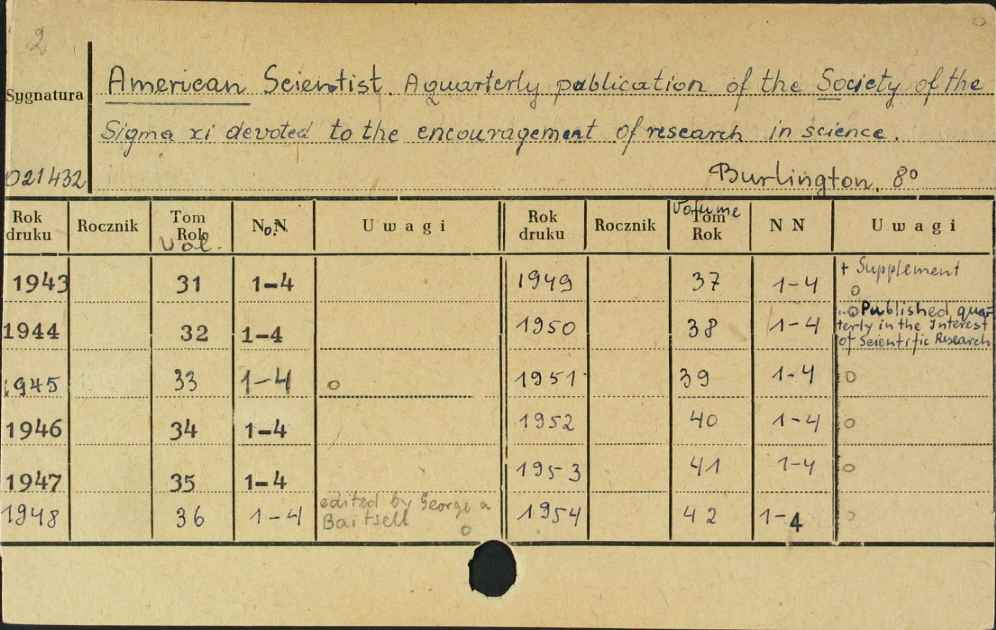 2
Sygnatura
American Scientist. A quarterly publication of the Society of the
Sigma xi devoted to the encouragement of research in science.
021432
Burlington. 8°
Rok druku Rocznik Tom Rok Vol. No. N Uwagi Rok druku Rocznik Volume Tom Rok N N Uwagi
1943 31 1-4 1949 37 1-4 + Supplement o
1944 32 1-4 1950 38 1-4 o Published quarterly in the Interest of Scientific Research
1945 33 1-4 o 1951 39 1-4 o
1946 34 1-4 1952 40 1-4 o
1947 35 1-4 1953 41 1-4 o
1948 36 1-4 edited by George a Baitsell o 1954 42 1-4 o